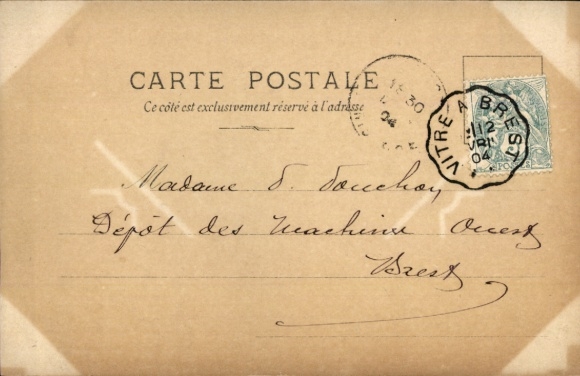 CARTE POSTALE
Ce côté est exclusivement réservé à l'adresse
30
04
VITRÉ A BREST
12
AVRIL
04
Madame
Dépôt des Machines Ouest
Brest